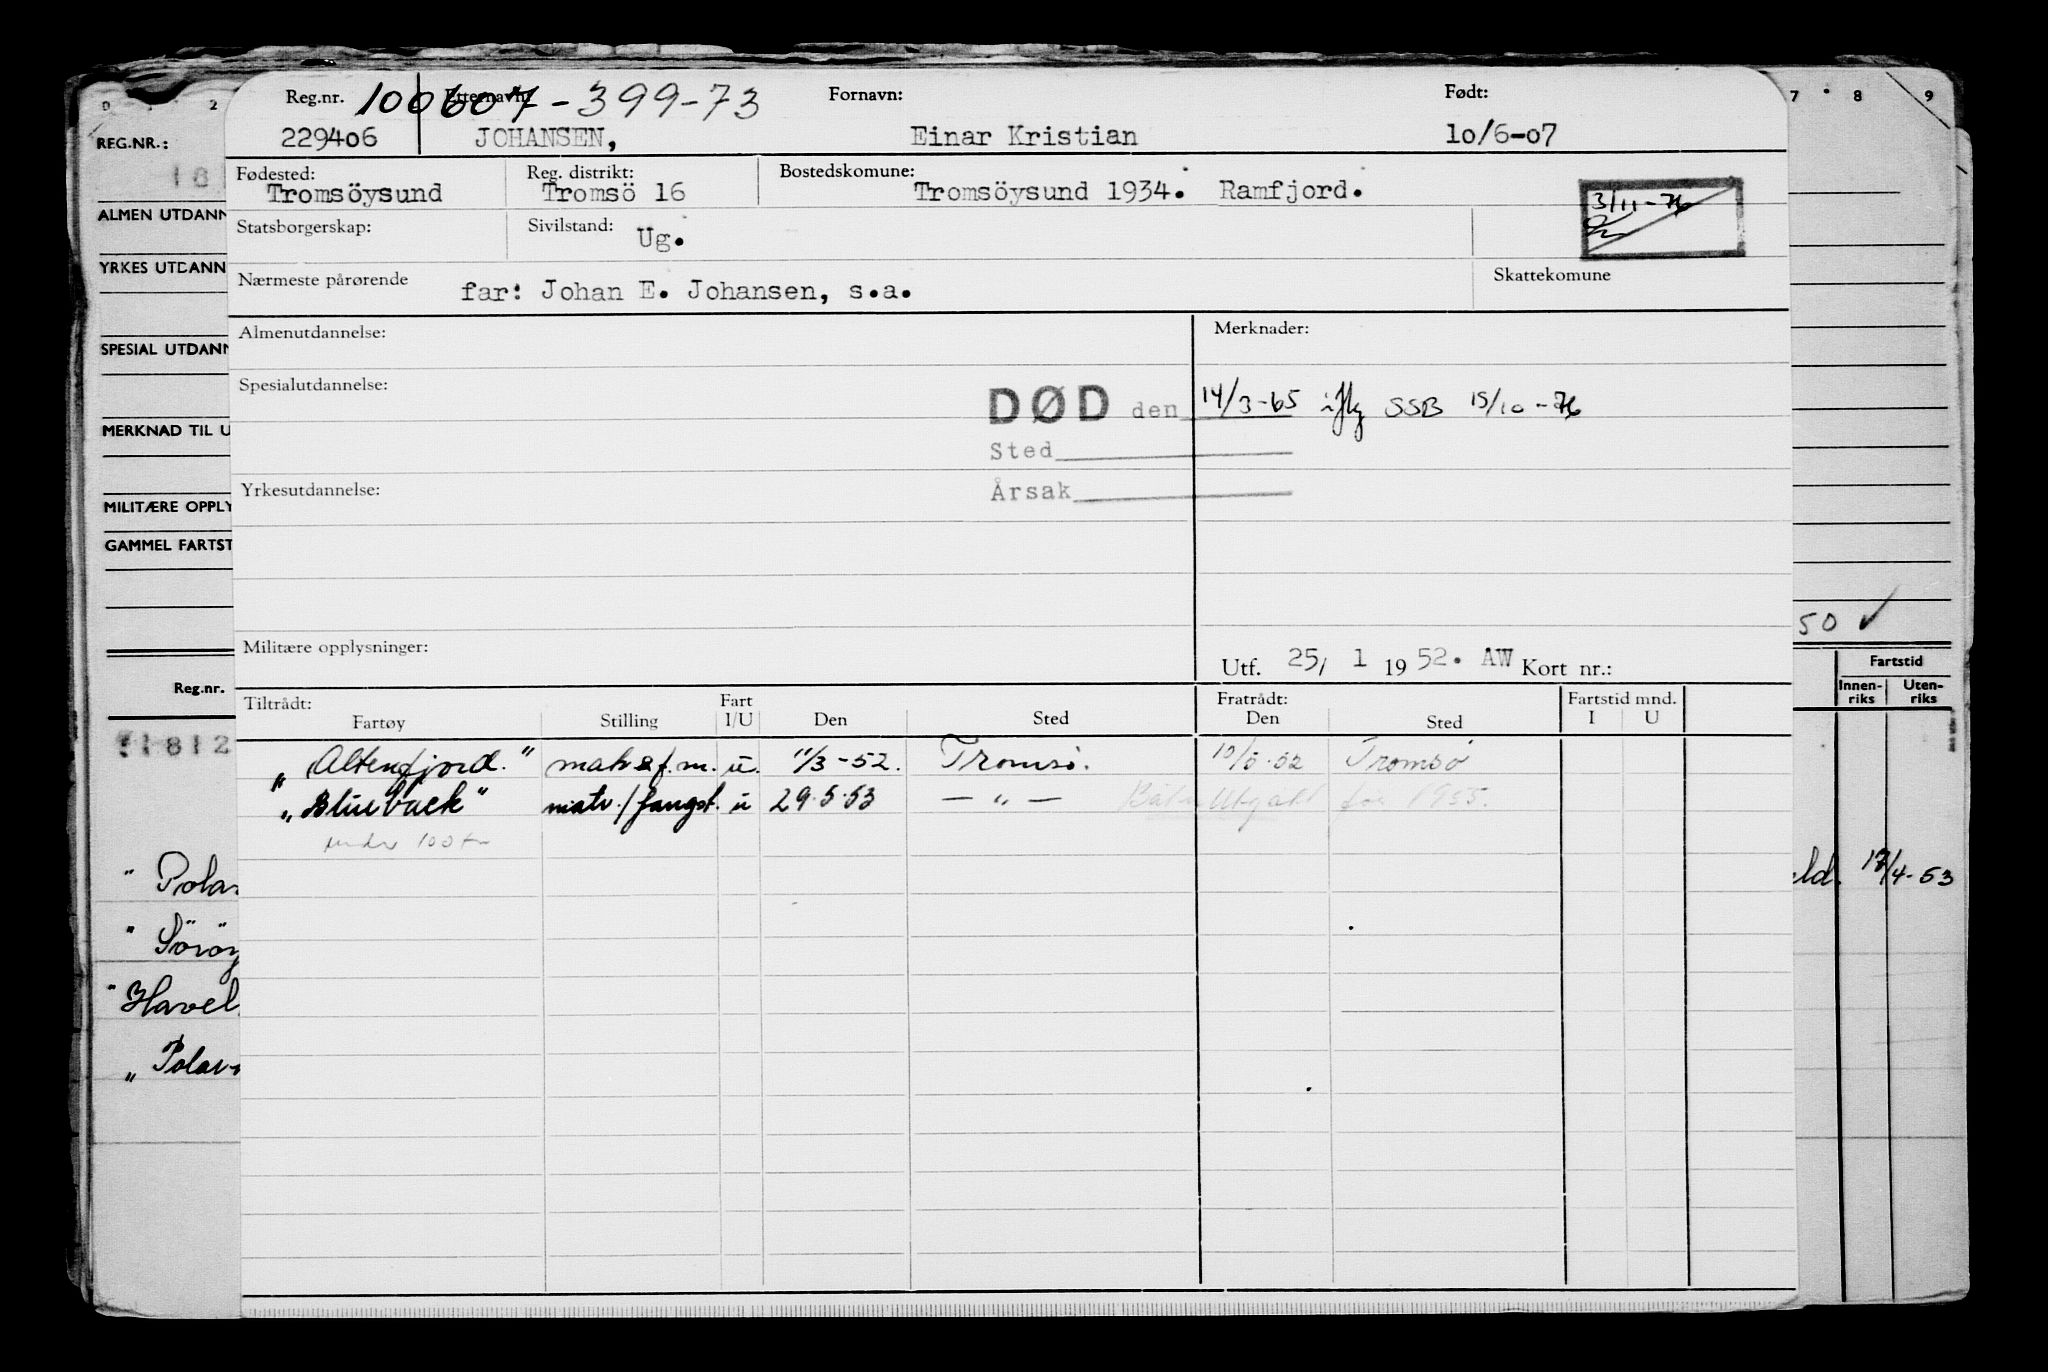 Reg.nr. Etternavn: 100607-399-73 Fornavn: Født:
229406 JOHANSEN, Einar Kristian 10/6-07
Fødested: Reg. distrikt: Bostedskomune:
Tromsöysund Tromsö 16 Tromsöysund 1934. Ramfjord.
3/11-76
Statsborgerskap: Sivilstand: Ug.
Nærmeste pårørende far: Johan E. Johansen, s.a. Skattekomune
Almenutdannelse: Merknader:
Spesialutdannelse:
DØD den 14/3-65 iflg SSB 15/10-76
Sted
Yrkesutdannelse: Årsak
Militære opplysninger: Utf. 25/ 1 1952. AW Kort nr.:
Tiltrådt: Fart Fratrådt: Fartstid mnd.
Fartøy Stilling I/U Den Sted Den Sted I U
"Altenfjord." u. 11/3-52. Tromsø. 52 Tromsø
"Blueback" matr./fangst. u 29.5.53 — " — før 1955.
under 100
0 2 7 8 9
REG.NR.:
18
ALMEN UTDANN
YRKES UTDANN
SPESIAL UTDANN
MERKNAD TIL U
MILITÆRE OPPLY
GAMMEL FARTST
50 ✓
Reg.nr. Fartstid
Innenriks Utenriks
1812
" Polar ld. 17/4-53
" Söröy
" Havel
" Polar